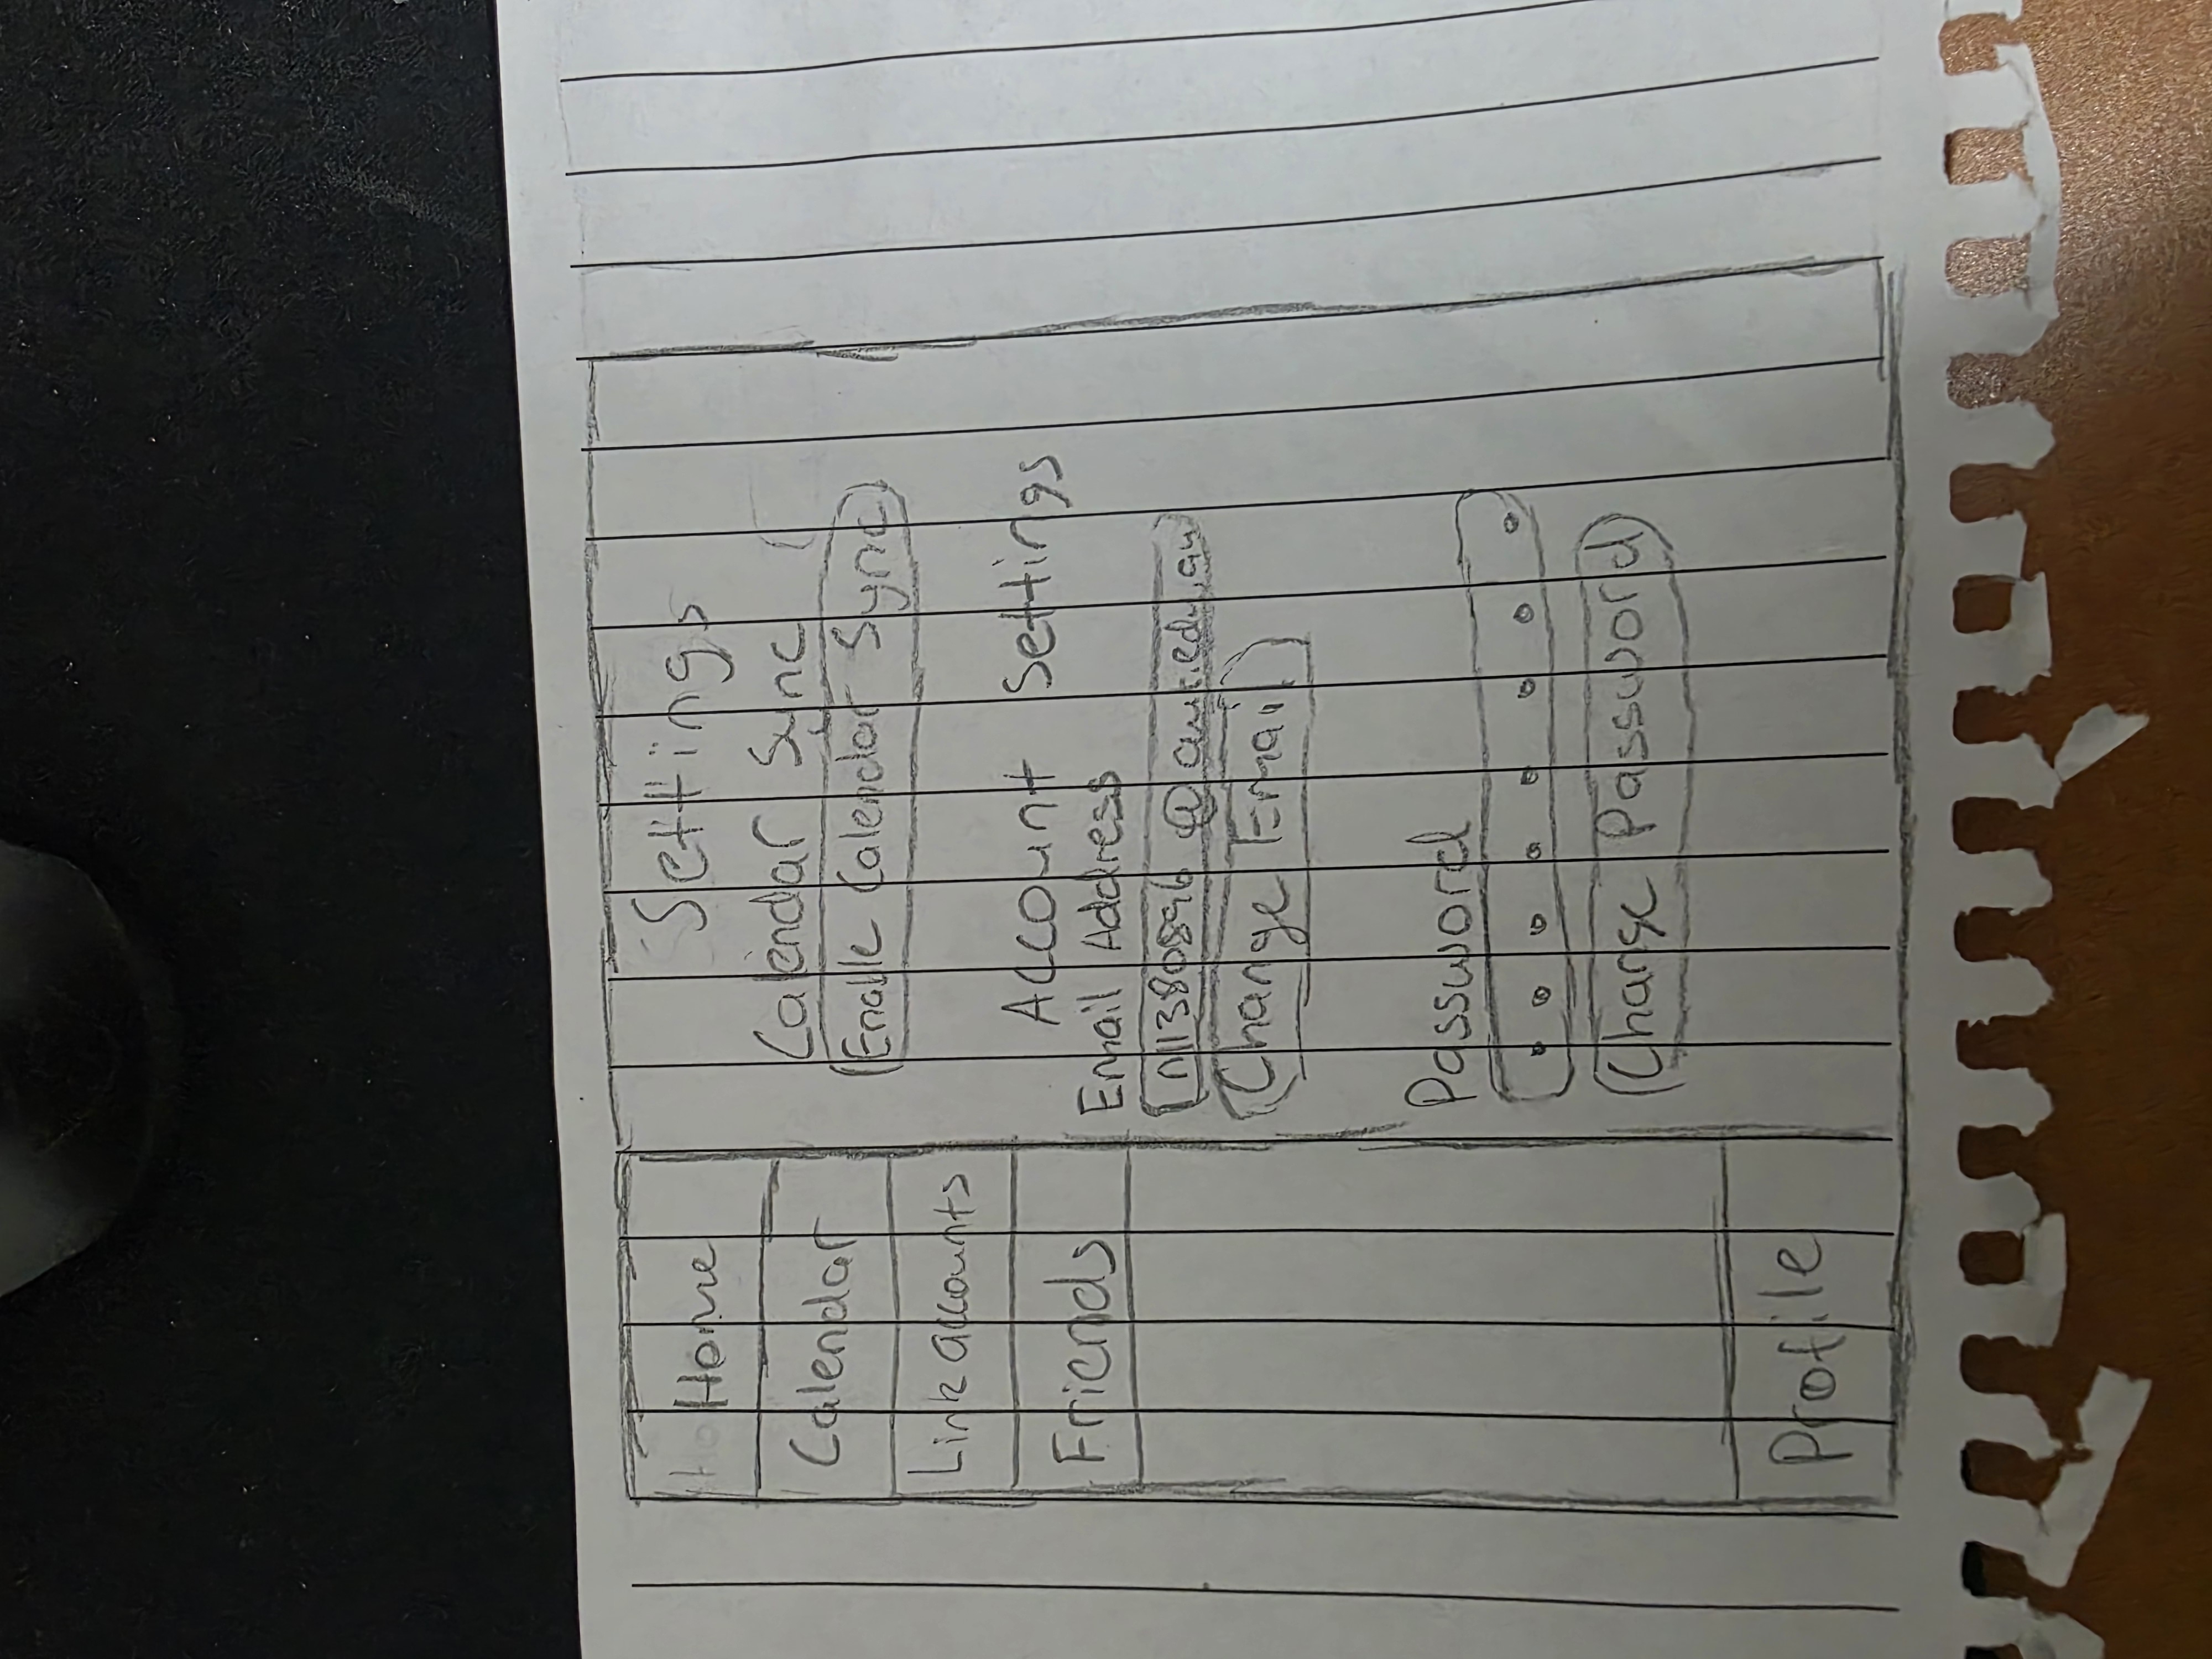 Home
Calendar
Link accounts
Friends
Profile
Settings
Calendar Sync
Enable Calendar Sync
Account Settings
Email Address
n11380896
Change Email
Password
Change Password